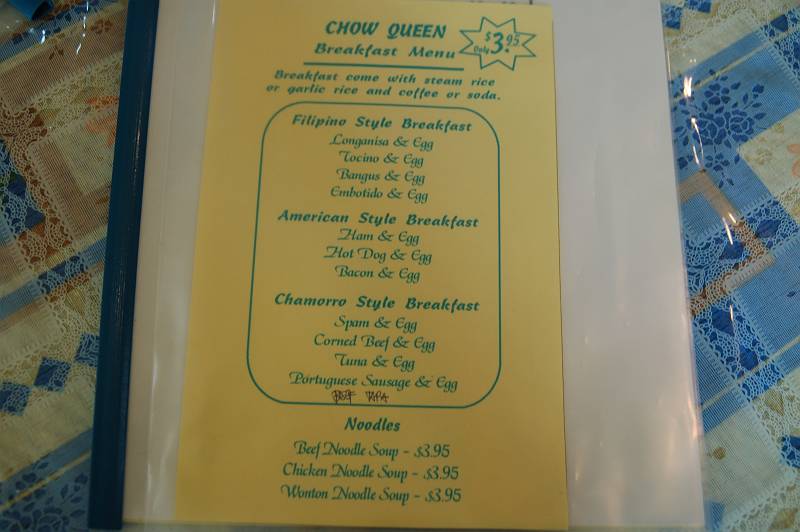 CHOW QUEEN
Breakfast Menu
Only $3.95
Breakfast come with steam rice
or garlic rice and coffee or soda.
Filipino Style Breakfast
Longanisa & Egg
Tocino & Egg
Bangus & Egg
Embotido & Egg
American Style Breakfast
Ham & Egg
Hot Dog & Egg
Bacon & Egg
Chamorro Style Breakfast
Spam & Egg
Corned Beef & Egg
Tuna & Egg
Portuguese Sausage & Egg
BEEF TAPA
Noodles
Beef Noodle Soup - $3.95
Chicken Noodle Soup - $3.95
Wonton Noodle Soup - $3.95